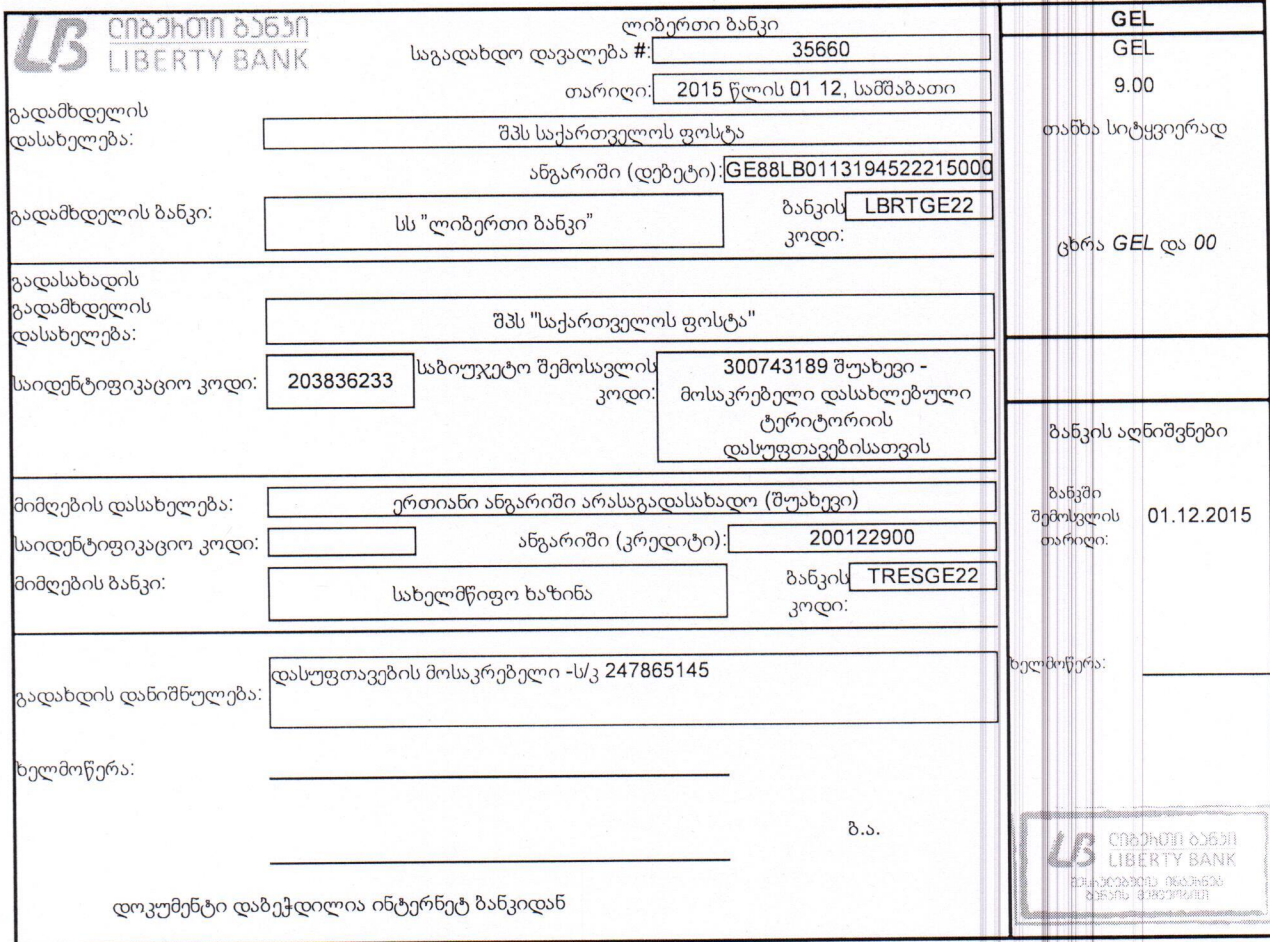 ლიბერთი ბანკი
LIBERTY BANK
ლიბერთი ბანკი
საგადახდო დავალება #: 35660
თარიღი: 2015 წლის 01 12, სამშაბათი
გადამხდელის
დასახელება:
შპს საქართველოს ფოსტა
ანგარიში (დებეტი): GE88LB0113194522215000
გადამხდელის ბანკი:
სს "ლიბერთი ბანკი"
ბანკის
კოდი:
LBRTGE22
გადასახადის
გადამხდელის
დასახელება:
შპს "საქართველოს ფოსტა"
საიდენტიფიკაციო კოდი: 203836233
საბიუჯეტო შემოსავლის
კოდი:
300743189 შუახევი -
მოსაკრებელი დასახლებული
ტერიტორიის
დასუფთავებისათვის
მიმღების დასახელება: ერთიანი ანგარიში არასაგადასახადო (შუახევი)
საიდენტიფიკაციო კოდი:
ანგარიში (კრედიტი): 200122900
მიმღების ბანკი:
სახელმწიფო ხაზინა
ბანკის
კოდი:
TRESGE22
გადახდის დანიშნულება:
დასუფთავების მოსაკრებელი -ს/კ 247865145
ხელმოწერა:
ბ.ა.
დოკუმენტი დაბეჭდილია ინტერნეტ ბანკიდან
GEL
GEL
9.00
თანხა სიტყვიერად
ცხრა GEL და 00
ბანკის აღნიშვნები
ბანკში
შემოსვლის
თარიღი:
01.12.2015
ხელმოწერა:
ლიბერთი ბანკი
LIBERTY BANK
შესრულებულია ინტერნეტ
ბანკის მეშვეობით